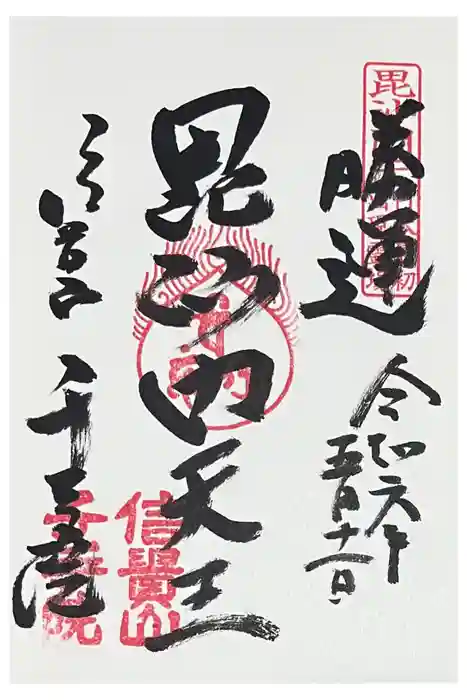 勝運
令和六年
五月十一日
毘沙門天王
信貴山
千手院
信貴山
千手院